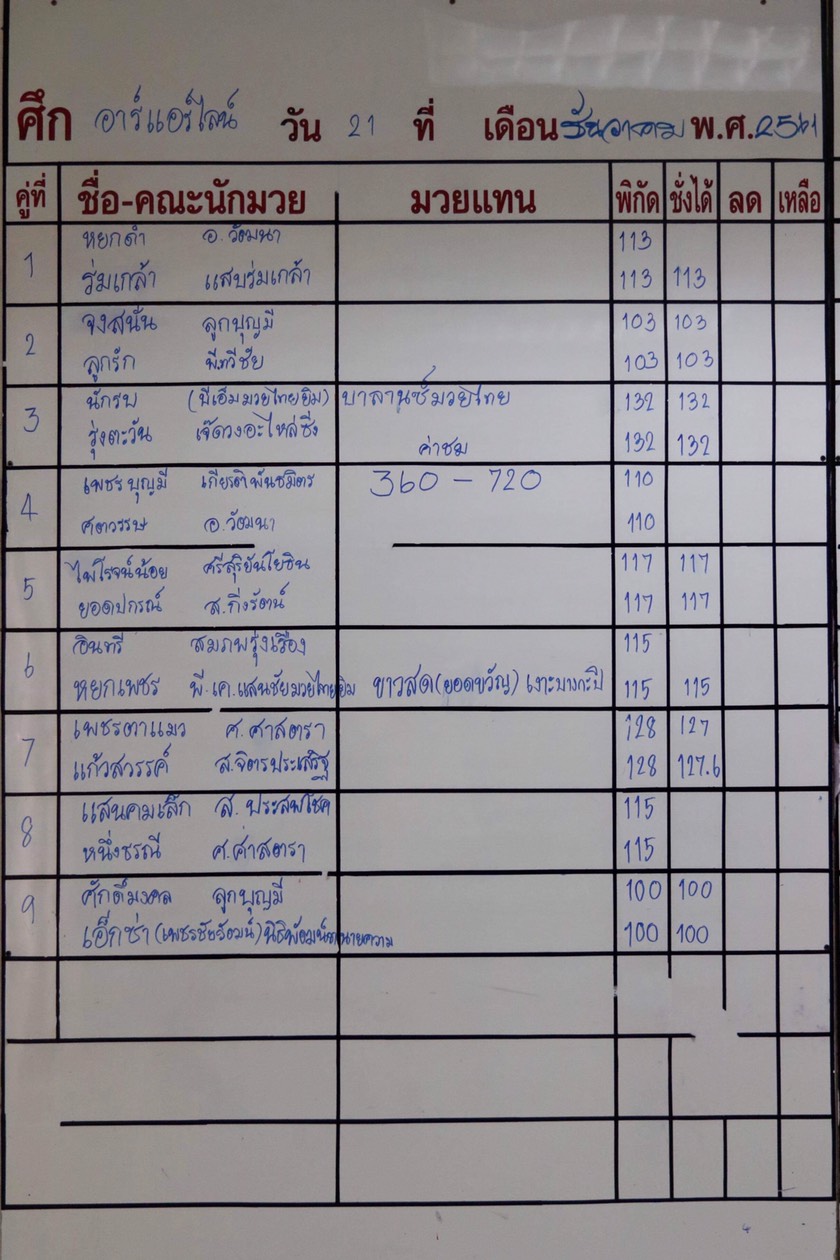 ศึก อาร์แอร์ไลน์ วัน 21 ที่ เดือน ธันวาคม พ.ศ. 2561
คู่ที่ ชื่อ-คณะนักมวย มวยแทน พิกัด ชั่งได้ ลด เหลือ
1 หยกดำ อ.วัฒนา 113
ร่มเกล้า แสบร่มเกล้า 113 113
2 จงสนั่น ลูกบุญมี 103 103
ลูกรัก พีทวีชัย 103 103
3 นักรบ (พีเอ็มมวยไทยยิม) บาลานซ์มวยไทย 132 132
รุ่งตะวัน เจ๊ดวงอะไหล่ซิ่ง 132 132
ค่าชม
4 เพชรบุญมี เกียรติพันธมิตร 360 - 720 110
ศตวรรษ อ.วัฒนา 110
5 ไพโรจน์น้อย ศรีสุริยันโยธิน 117 117
ยอดปกรณ์ ส.กิ่งรัตน์ 117 117
6 อินทรี สมภพรุ่งเรือง 115
หยกเพชร พี.เค.แสนชัยมวยไทยยิม ขาวสด(ยอดขวัญ) เงาะบางกะปิ 115 115
7 เพชรตาแมว ศ.ศาสตรา 128 127
แก้วสวรรค์ ส.จิตรประเสริฐ 128 127.6
8 แสนคมเล็ก ส.ประสพโชค 115
หนึ่งธรณี ศ.ศาสตรา 115
9 ศักดิ์มงคล ลูกบุญมี 100 100
เอ็กซ่า (เพชรชัยวัฒน์) 100 100